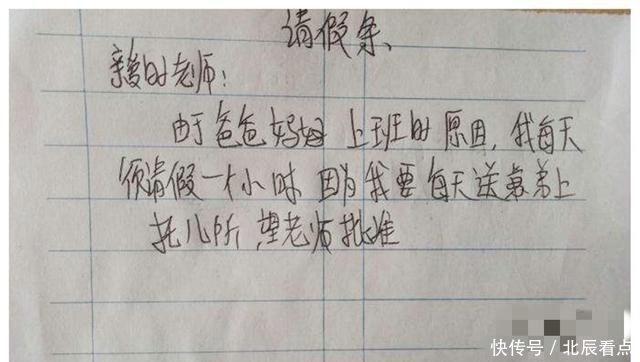 请假条
亲爱的老师：
由于爸爸妈妈 上班的 原因，我每天
须请假一个小时 因为我要 每天送弟弟上
托儿所，望老师批准
快传号／北辰看点